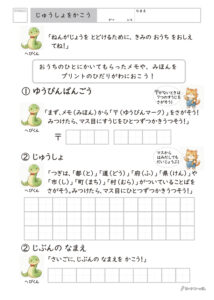 じゅうしょをかこう
なまえ
「ねんがじょうを とどけるために、きみの おうちを おしえてね!」
へびくん
おうちのひとにかいてもらったメモや、みほんを
プリントのひだりがわにおこう!
① ゆうびんばんごう
「まず、メモ(みほん)から「〒(ゆうびんマーク)」をさがそう!
みつけたら、マス目にすうじをひとつずつかきうつそう!」
へびくん
〒
② じゅうしょ
マスから
はみだしても
だいじょうぶ!
「つぎは、「都(と)」「道(どう)」「府(ふ)」「県(けん)」や
「市(し)」「町(まち)」「村(むら)」がついていることばを
さがそう!みつけたら、マス目にひとつずつかきうつそう!」
へびくん
② じぶんの なまえ
「さいごに、じぶんの なまえを かこう!」
へびくん